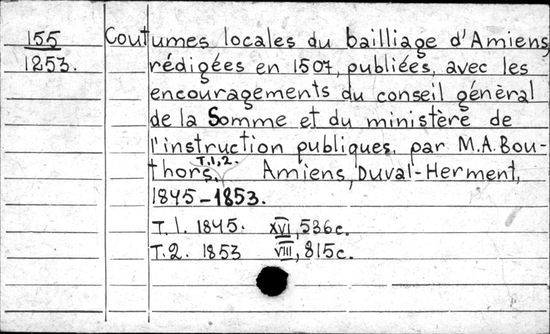 155
1253.
Coutumes locales du bailliage d'Amiens,
rédigées en 1507, publiées, avec les
encouragements du conseil général
de la Somme et du ministère de
l'instruction publiques. par M.A. Bou-
thors. T.1,2. Amiens, Duval-Herment,
1845-1853.
T.1. 1845. XVI, 536c.
T.2. 1853 VIII, 815c.